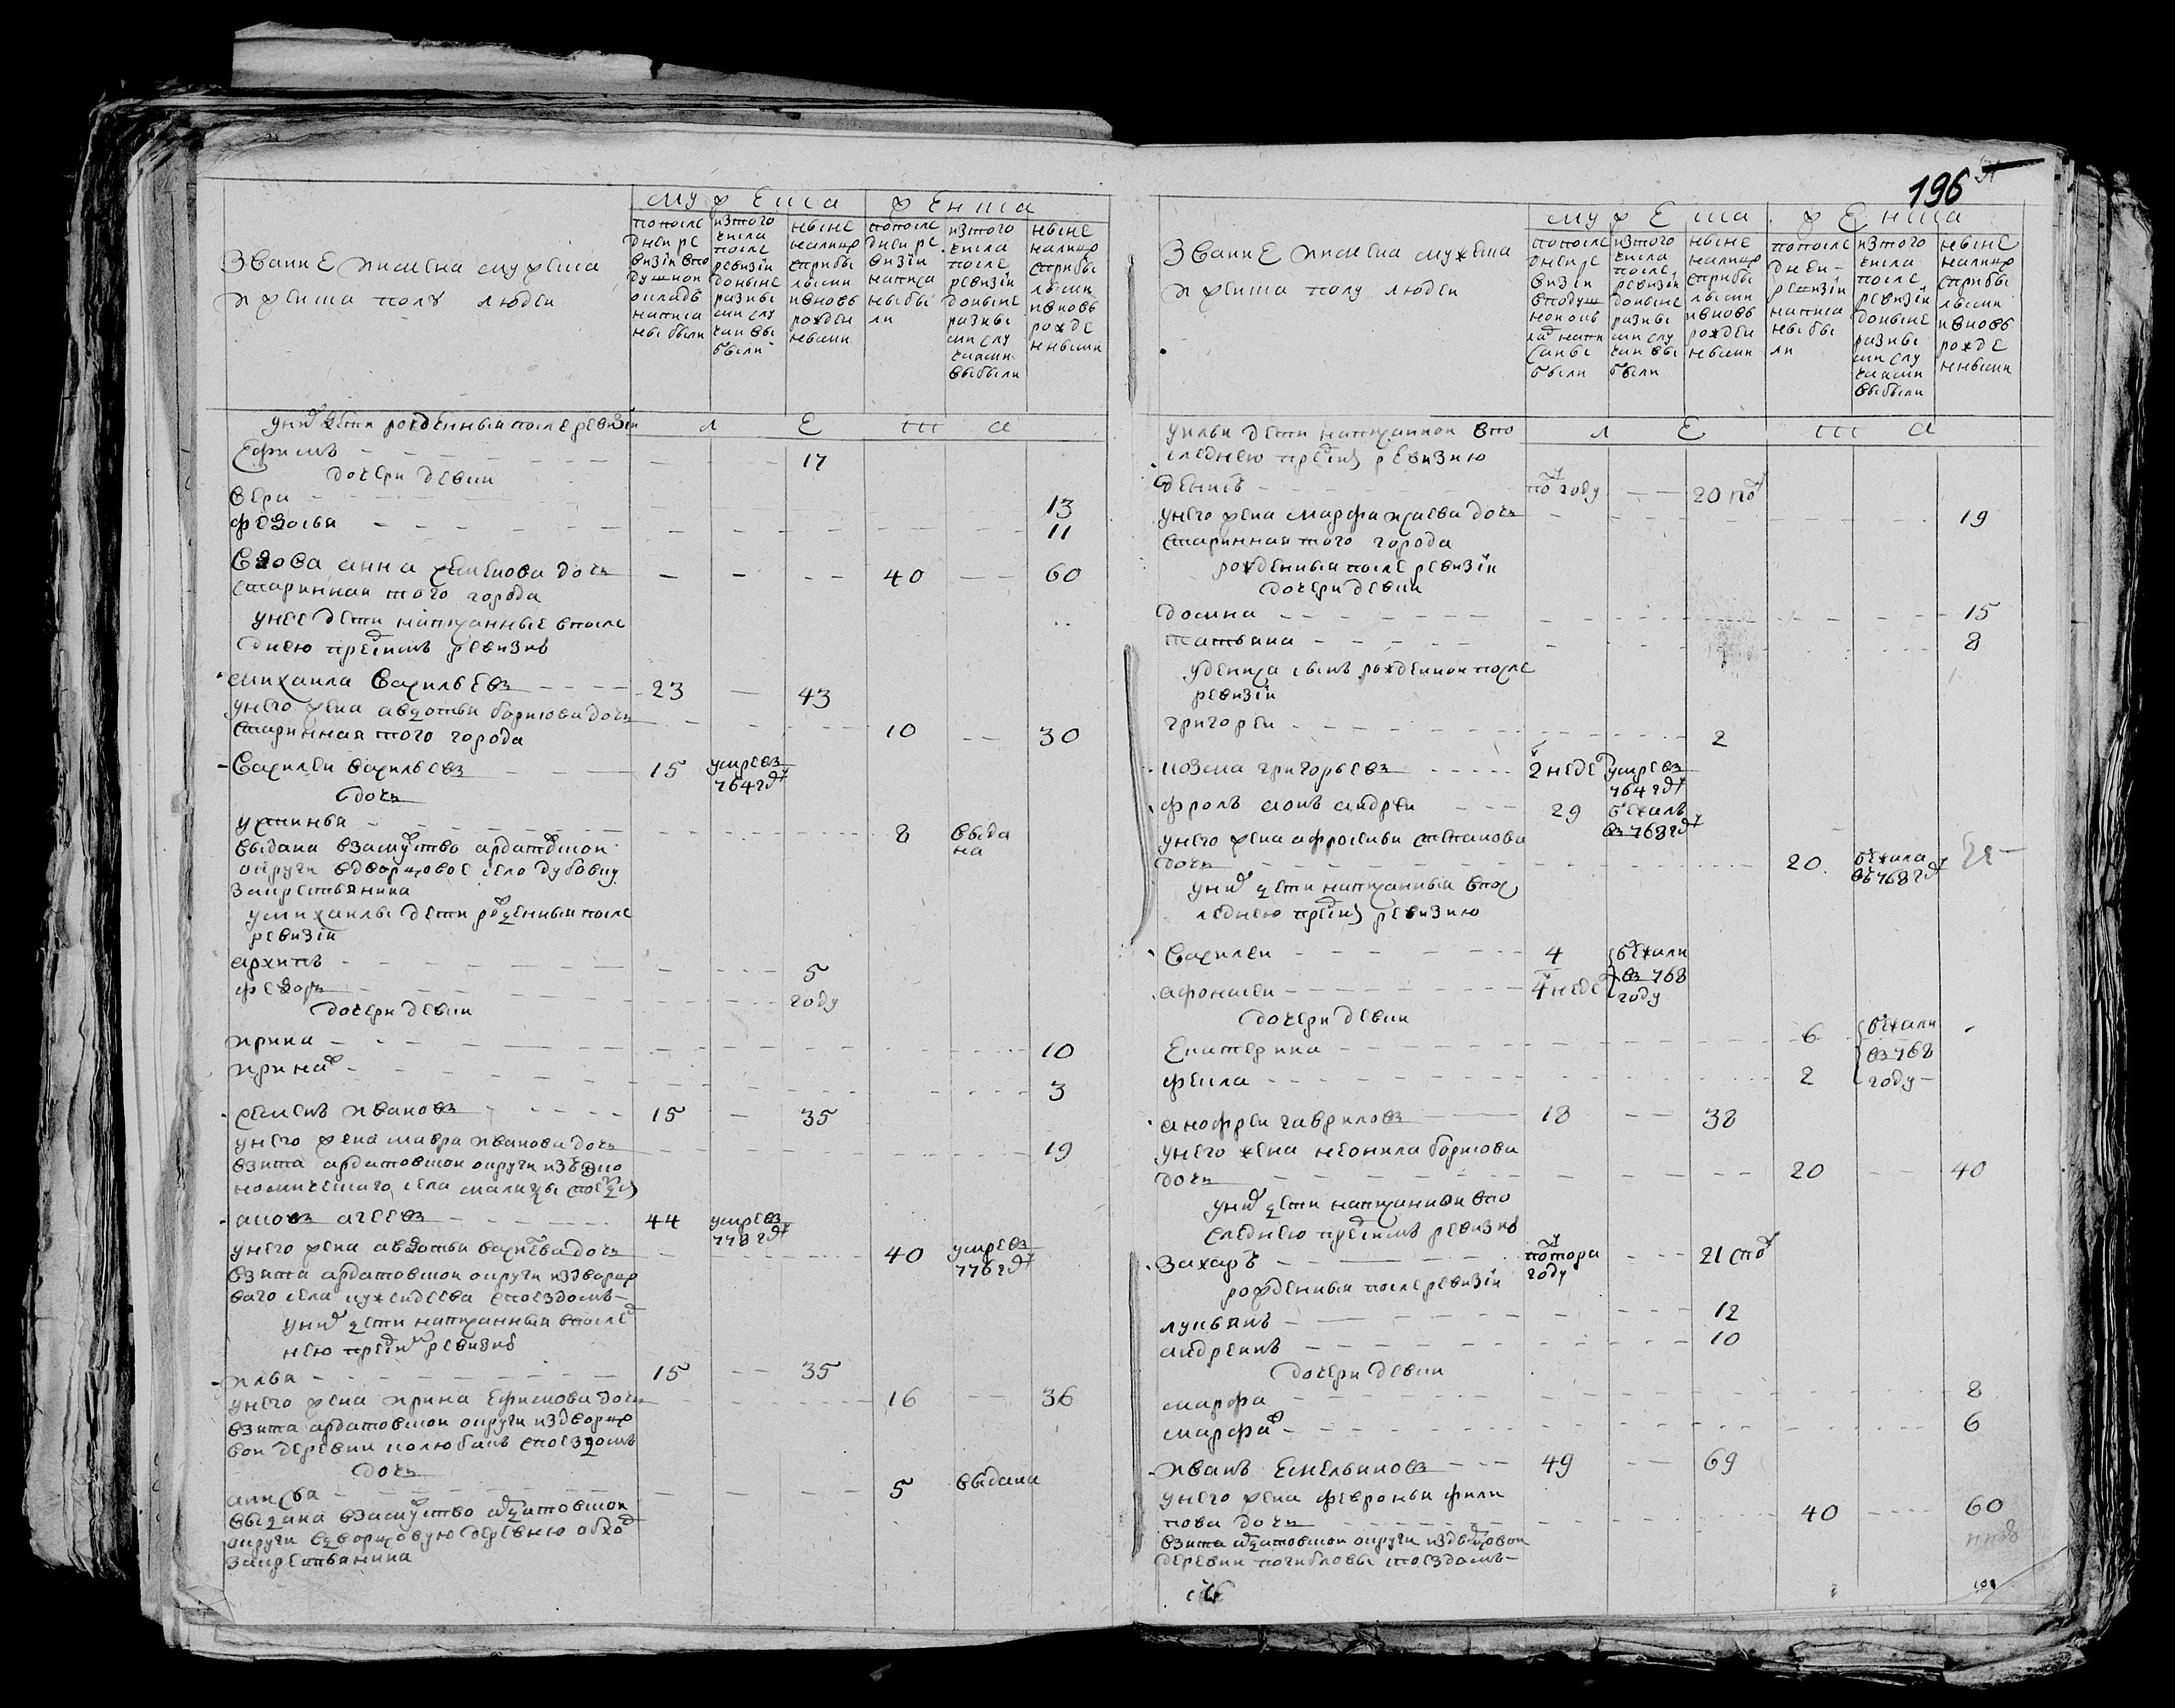 муж Еска
женска
Звание и имена мужеска
и женска полу людеи
попосле
днеи ре
визiи впо
душнои
окладъ
написа
ны были
изтого
числа
после
ревизiи
доныне
разны
ми слу
чаи вы
были
ныне
налицо
сприбы
лыми
ивновь
рожден
ными
попосле
днеи ре
визiи
написа
ны бы
ли
изтого
числа
после
ревизiи
доныне
разны
ми слу
чаями
выбыли
ныне
налицо
сприбы
лыми
ивновь
рожде
нными
л Е т а
уних дети рожденныя после ревизiи
Ефимъ 17
дочери девки
вера 13
федосья 11
Вдова анна семенова дочь 40 60
старинная того города
унее дети написанные впосле
днею пред сим ревизию
михаила Васильевъ 23 43
унего жена авдотья борисова дочь 10 30
старинная того города
Василеи васильевъ 15 умре въ
764 годе
дочь
устинья 8 выда
на
выдана взамужство ардатовскои
округи вдворцовое село дубовку
закрестьянина
умихаилы дети рожденныя после
ревизiи
архипъ 5
федоръ году
дочери девки
ирина 10
ирина 3
семенъ ивановъ 15 35
унего жена мавра иванова дочь 19
взята ардатовскои округи изъ эко
номическаго села
аковъ агеевъ 44 умре въ
778 годе
унего жена авдотья васильева дочь 40 умре въ
776 годе
взята ардатовскои округи издворцо
ваго села кужендеева споездомъ
уних дети написанныя впослед
нею пред сим ревизию
илья 15 35
унего жена ирина Ефимова дочь 16 36
взята ардатовскои округи издворцо
вои деревни колюбакъ споездомъ
дочь
анисья 5 выдана
выдана взамужство ардатовскои
округи вдворцовую деревню
закрестьянина
196
муж Е ска
ж Е нска
Звание и имена мужеска
и женска полу людеи
попосле
днеи ре
визiи
вподуш
нои окъ
лад напи
саны
были
изтого
числа
после
ревизiи
доныне
разны
ми слу
чаи вы
были
ныне
налицо
сприбы
лыми
ивновь
рожден
ными
попосле
днеи
ревизiи
написа
ны бы
ли
изтого
числа
после
ревизiи
доныне
разны
ми слу
чаями
выбыли
ныне
налицо
сприбы
лыми
ивновь
рожде
нными
л Е т а
уильи дети написаннои впо
следнею пред сим ревизию
денисъ пол году 20 пол
унего жена марфа исаева дочь 19
старинная того города
рожденныя после ревизiи
дочери девки
домна 15
татьяна 8
удениса сынъ рожденнои после
ревизiи
григореи 2
козма григорьевъ 2 неде умре въ
764 годе
фролъ аковъ андреи 29 бежалъ
въ 768 годе
унего жена афросенья степанова
дочь 20 бежала
въ 768 годе
уних дети написанныя впос
леднею пред сим ревизию
Василеи 4 бежали
въ 768
году
афонасеи 4 неде
дочери девки
Екатерина 6 бежали
въ 768
году
фекла 2
анофреи гавриловъ 18 38
унего жена неонила борисова
дочь 20 40
уних дети написанныя впо
следнею пред сим ревизию
Захаръ полтора
году 21 спол
рожденныя после ревизiи
лукьянъ 12
андреянъ 10
дочери девки
марфа 8
марфа 6
иванъ Емельяновъ 49 69
унего жена февронья фили
пова дочь 40 60
взята ардатовскои округи издворцовои
деревни погибловы споездомъ